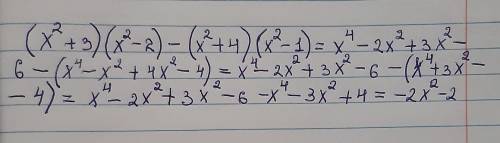 (x²+3)(x²-2)-(x²+4)(x²-1)= x⁴-2x²+3x²-
6-(x⁴-x²+4x²-4)=x⁴-2x²+3x²-6-(x⁴+3x²-
-4)= x⁴-2x²+3x²-6-x⁴-3x²+4=-2x²-2